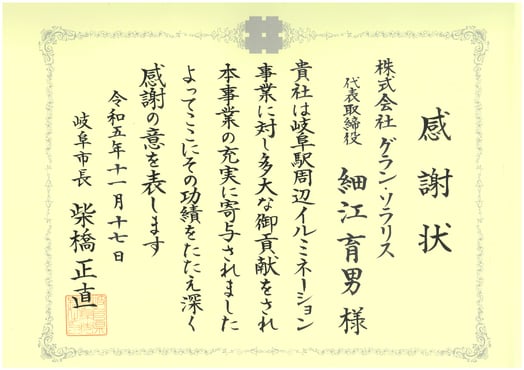 感謝状
株式会社 グラン・ソラリス
代表取締役 細江育男様
貴社は岐阜駅周辺イルミネーション
事業に対し多大な御貢献をされ
本事業の充実に寄与されました
よってここにその功績をたたえ深く
感謝の意を表します
令和五年十一月十七日
岐阜市長 柴橋正直